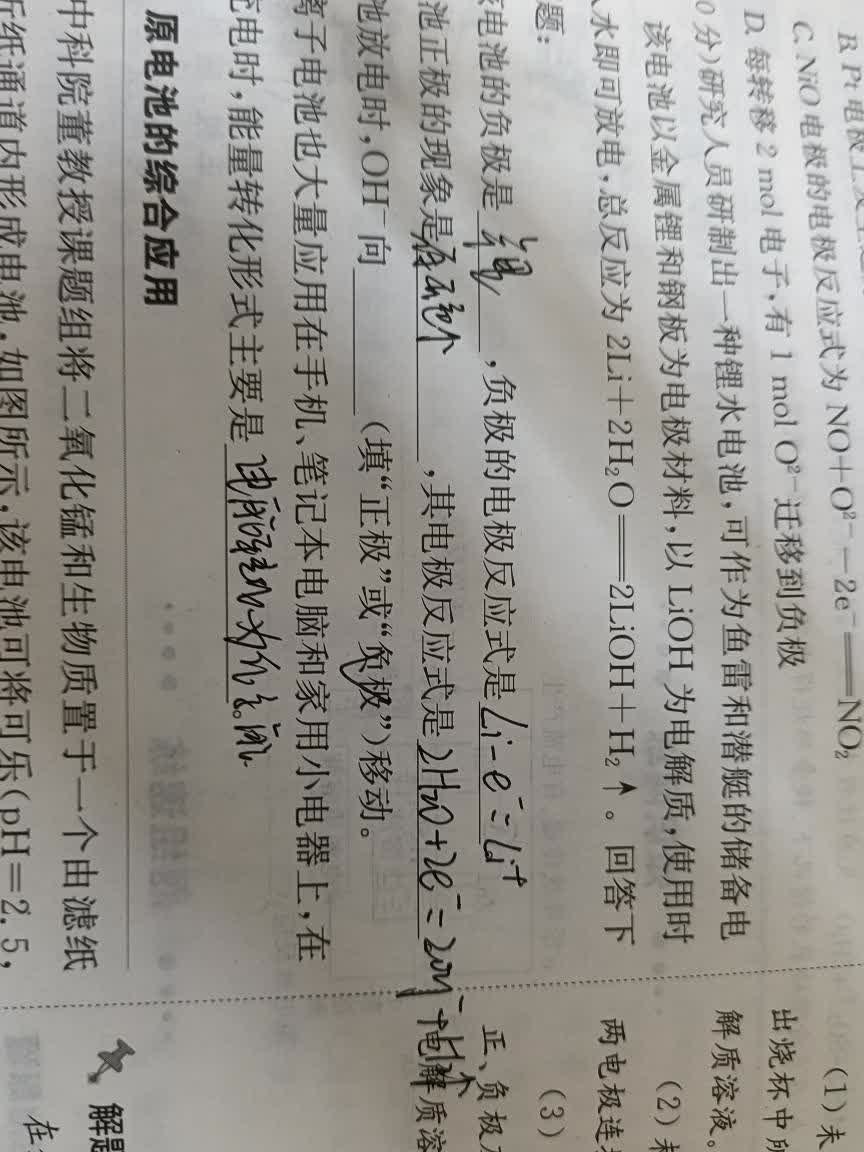 B. Pt 电极
C. NiO 电极的电极反应式为 NO+O²⁻-2e⁻══NO₂
D. 每转移 2 mol 电子,有 1 mol O²⁻ 迁移到负极
0 分)研究人员研制出一种锂水电池,可作为鱼雷和潜艇的储备电
该电池以金属锂和钢板为电极材料,以 LiOH 为电解质,使用时
水即可放电,总反应为 2Li+2H₂O══2LiOH+H₂↑。回答下
题:
电池的负极是 锂 ,负极的电极反应式是 Li-e⁻=Li⁺
池正极的现象是 ,其电极反应式是 2H₂O+2e⁻=2OH⁻+H₂↑
池放电时,OH⁻ 向 (填“正极”或“负极”)移动。
离子电池也大量应用在手机、笔记本电脑和家用小电器上,在
电时,能量转化形式主要是
原电池的综合应用
中科院董教授课题组将二氧化锰和生物质置于一个由滤纸
纸通道内形成电池,如图所示,该电池可将可乐(pH=2.5,
(1)
出烧杯中所
解质溶液。
(2)
两电极连
(3)
正、负极
电解质溶
解题
在